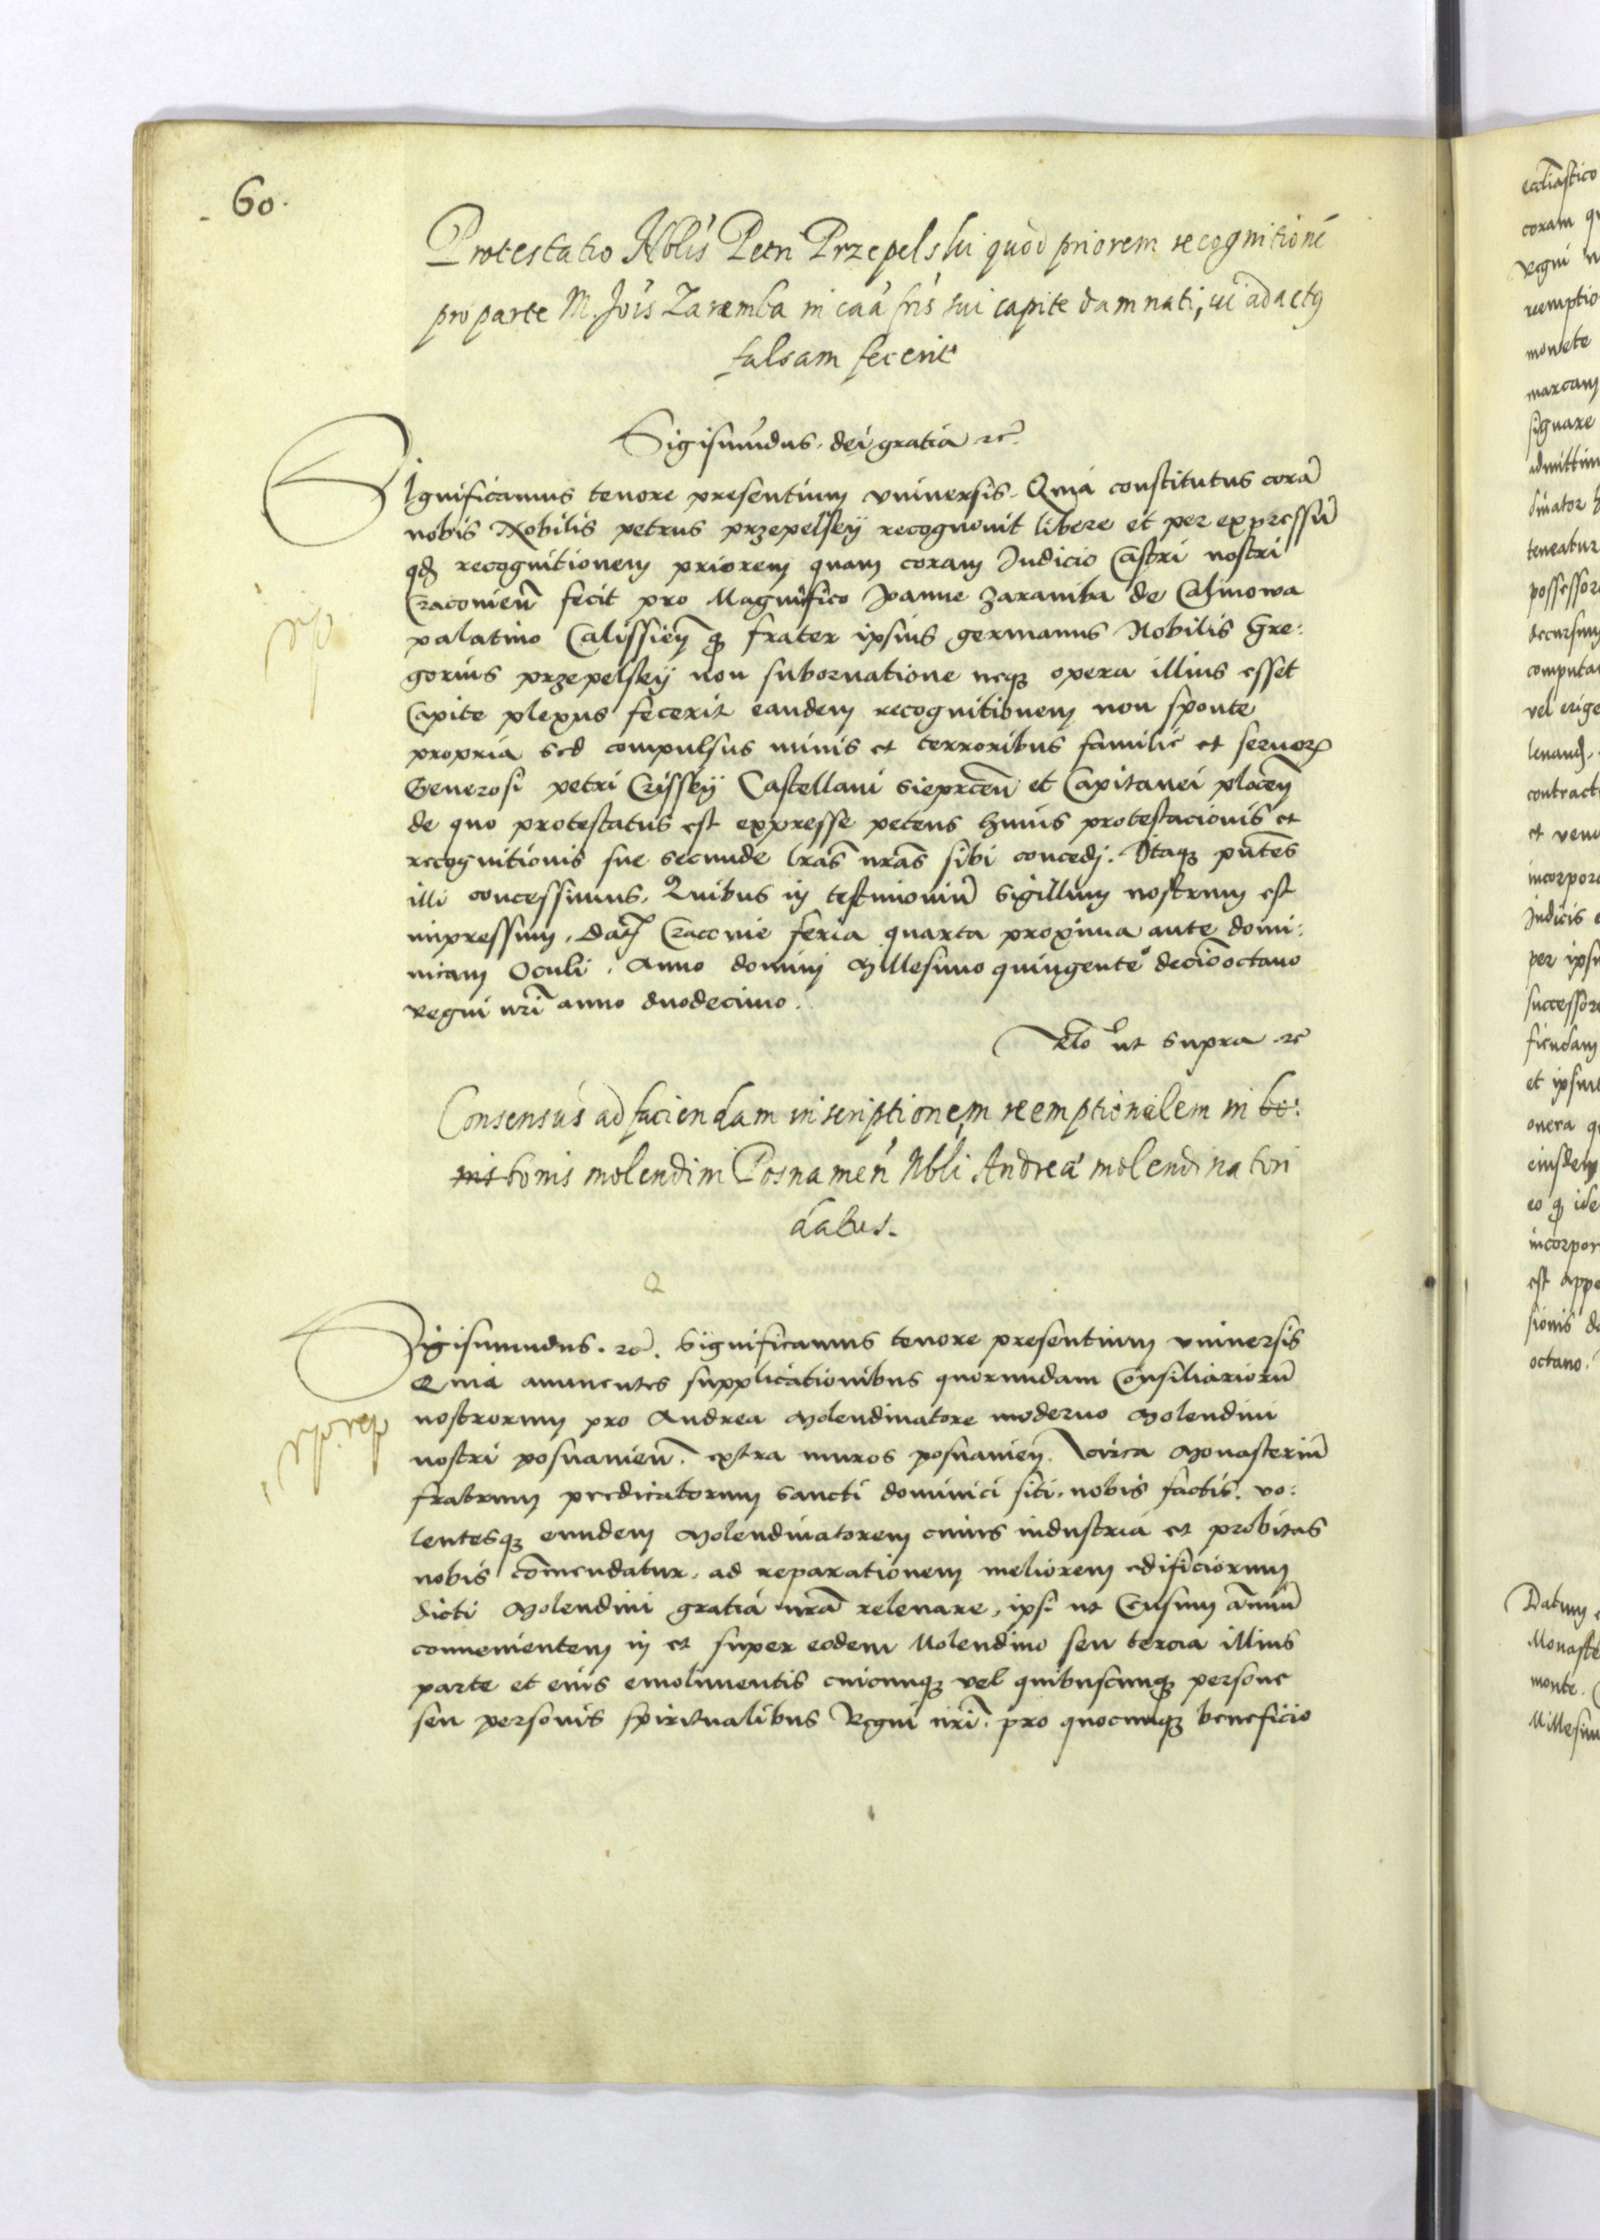 60.
Protestatio Nblis Petri Przepelski quod priorem recognitionē
pro parte M. Jois Zaremba in caā fris sui capite damnati, vi adactus
falsam fecerit
Sigismūdus dei gratia etc.
Significamus tenore presentium vniuersis. Quia constitutus corā
nobis Nobilis petrus przepelsky recognouit libere et per expressū
qđ recognitionem priorem quam coram Iudicio Castri nostri
Cracouieñ fecit pro Magnifico Ioanne Zaramba de Calinowa
palatino Calissieñ q frater ipsius germanus Nobilis Gre:
gorius przepelsky non subornatione neqꝫ opera illius esset
Capite plexus fecerit eandem recognitionem non sponte
propria sed compulsus minis et terroribus familie et seruorꝝ
Generosi petri Crissky Castellani Sieprceñ et Capitanei ploceñ
de quo protestatus est expresse petens huius protestacionis et
recognitionis sue secunde lrās nrās sibi concedj. Itaqꝫ pūtes
illi concessimus. Quibus in testimoniū sigillum nostrum est
impressum. Dat Cracouie feria quarta proxima ante domi:
nicam Oculi. Anno domini Millesimo quingenteo decīooctauo
regni nrī anno duodecimo.
Rlo ut supra etc
Consensus ad faciendam inscriptionem reemptionalem in bo:
nis bonis molendini Posnanień Nbli Andreæ molendinatori
datus.
Sigismundus. etc. Significamus tenore presentium vniuersis
Quia annuentes supplicationibus quorundam Consiliariorū
nostrorum pro Andrea Molendinatore moderno Molendini
nostri posnanieñ. extra muros posnanieñ. circa Monasteriū
fratrum predicatorum Sancti dominici siti. nobis factis. vo:
lentesqꝫ eundem Molendinatorem cuius industria et probitas
nobis cōmendatur. ad reparationem meliorem edificiorum
dicti Molendini gratia nrā releuare, ipsi ut Censum ānuū
conuenientem in et super eodem Molendino seu tercia illius
parte et eius emolimentis cuicunqꝫ vel quibuscunqꝫ persone
seu personis spiritualibus Regni nrī. pro quocunqꝫ beneficio
eccliastico
coram
Regni
reemptio
monete
marcam
signare
admittim
teneatur
possessor
decursum
computa
vel erige
leuand
contract
et
incorpor
Iudicis
per ipsu
successor
fiendam
et ipsu
onera
eiusdem
eo q ide
incorpor
est appo
sionis
octauo.
Datum
Monaste
monte.
Millesim